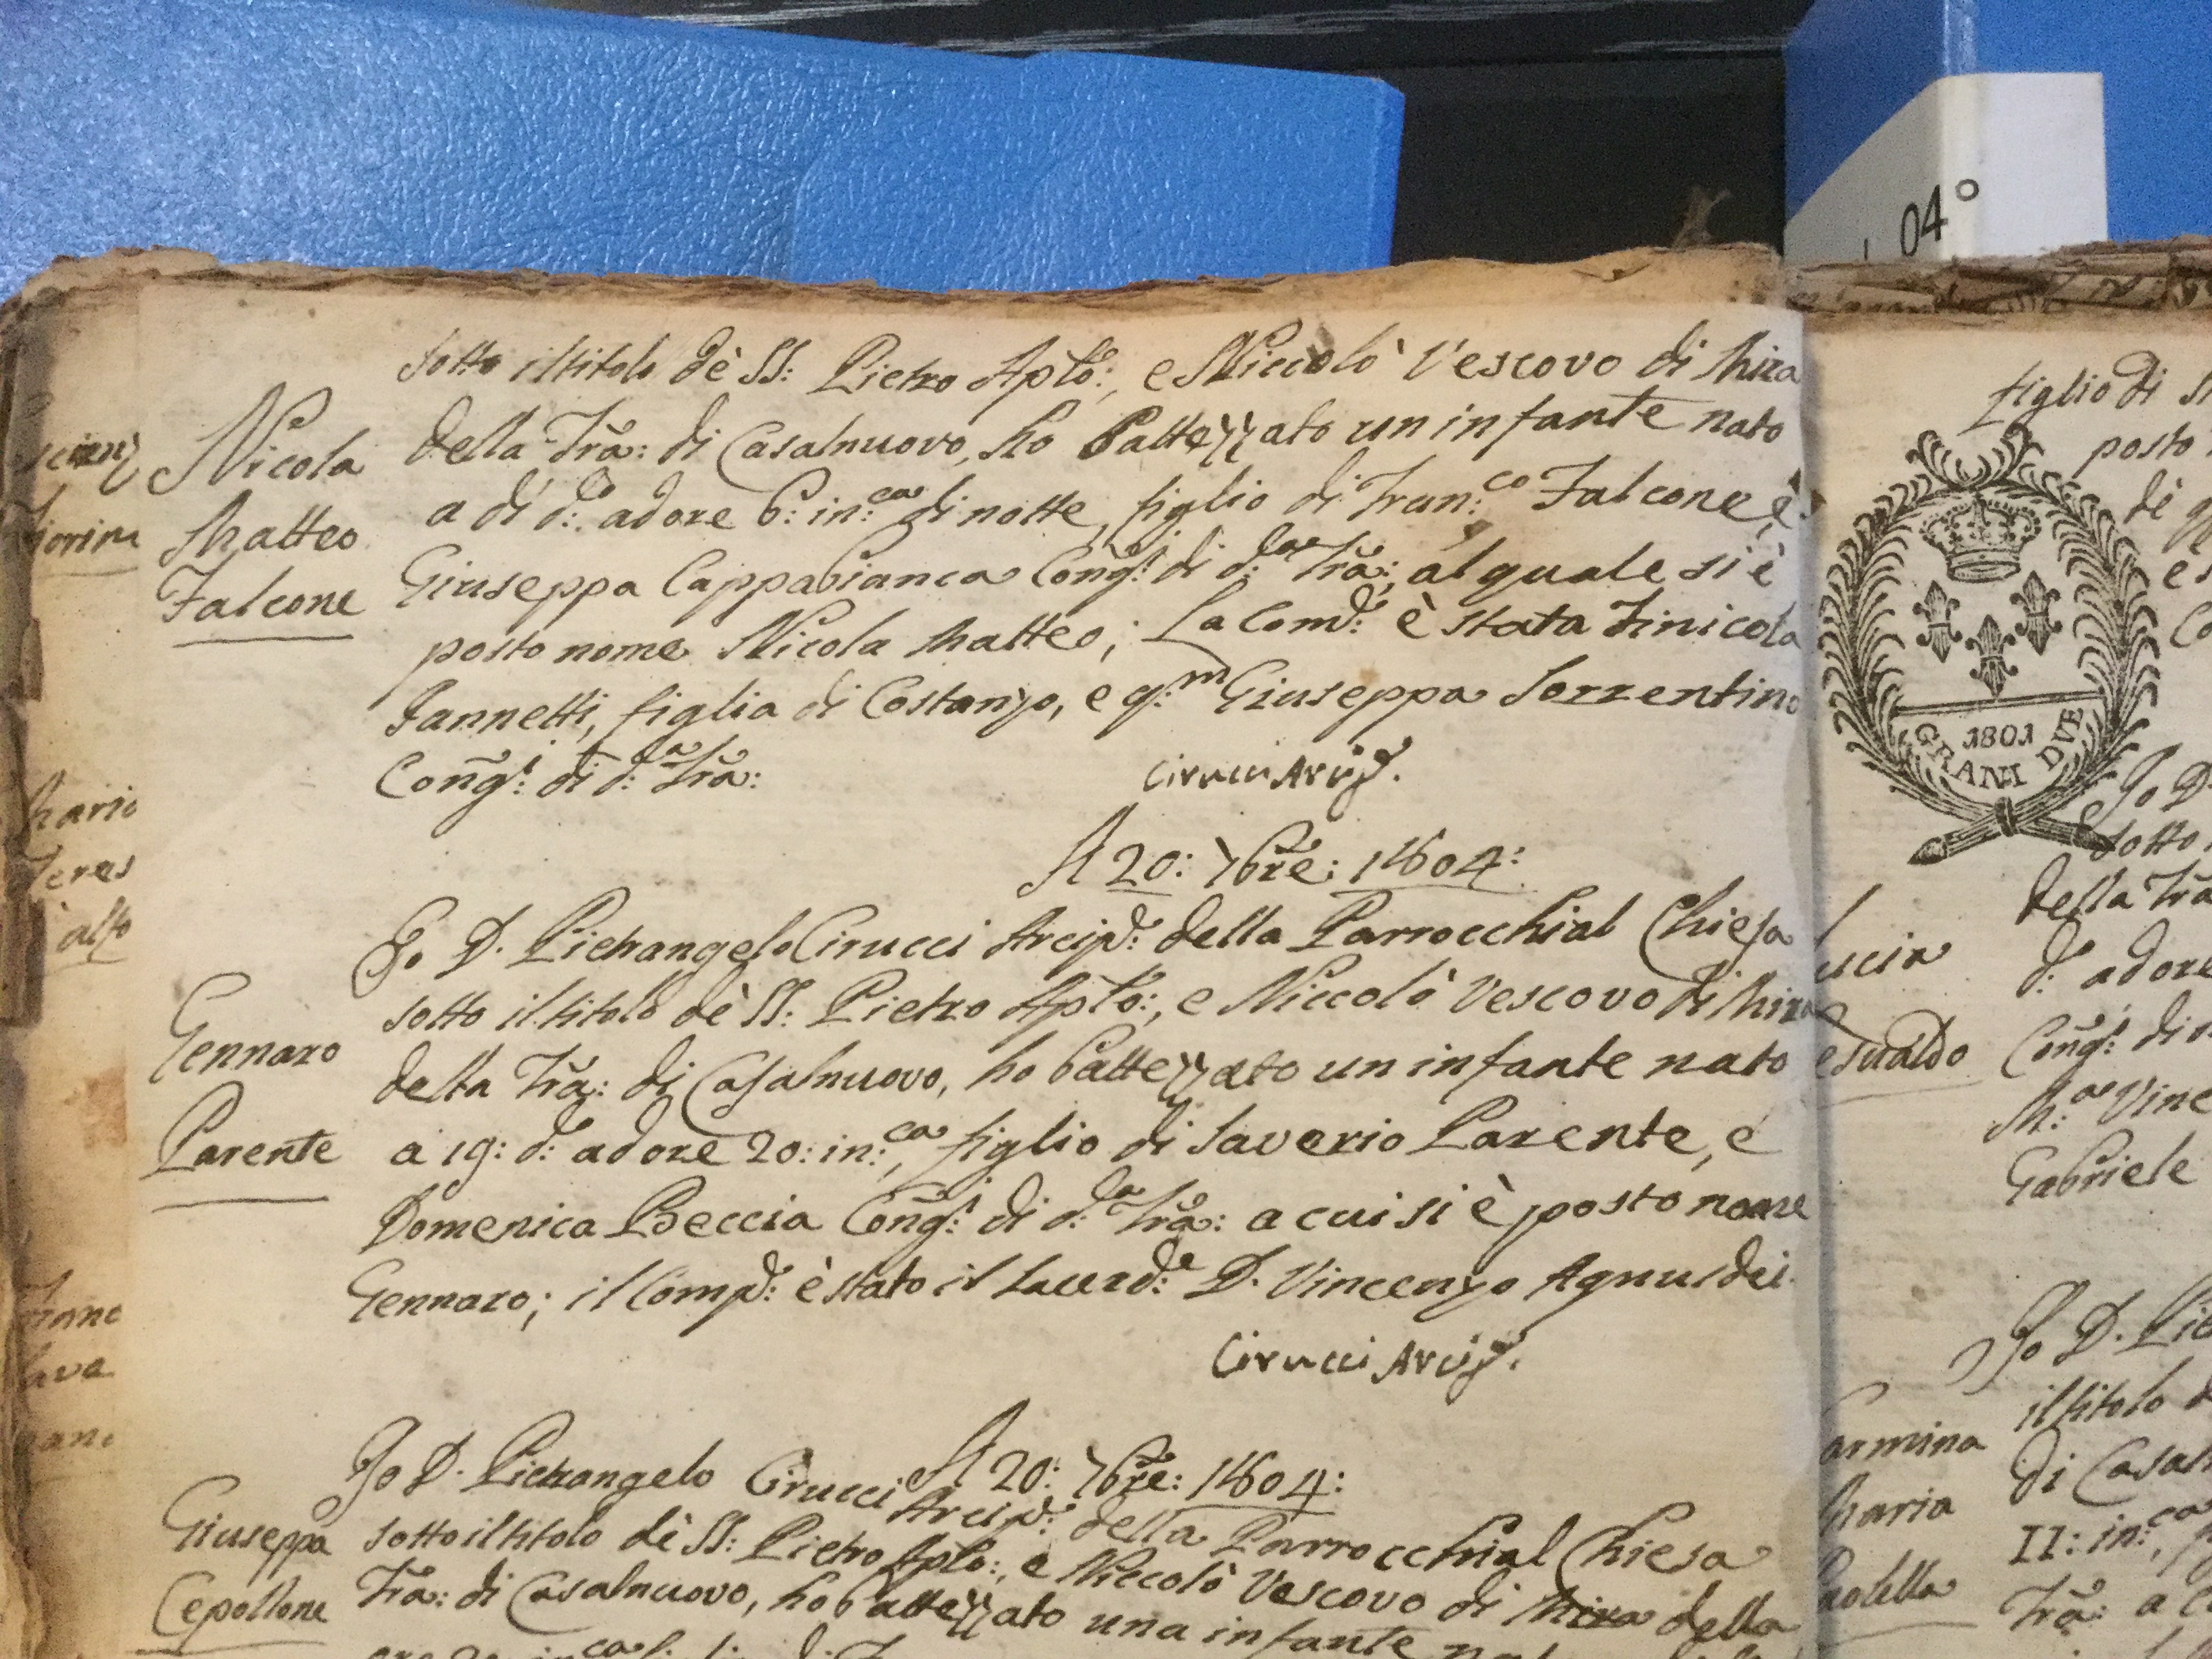 sotto il titolo dè SS: Pietro Aplo:, e Niccolò Vescovo di Mira
della Trã: di Casalnuovo, ho battezzato un infante nato
a dì d:o ad ore 6: in:ca di notte, figlio di Fran:co Falcone, è
Giuseppa Cappabianca Cong:i di d:a Trã:, al quale si è
posto nome Nicola Matteo; La Com:e è stata Finicola
Iannetti, figlia di Costanzo, e q:m Giuseppa Sorrentino
Cong:i di d:a Trã:
Cirucci Arcip.
Nicola
Matteo
Falcone
A 20: 7bre: 1804:
Io D. Pietrangelo Cirucci Arcip:e della Parrocchial Chiesa
sotto il titolo dè SS: Pietro Aplo:, e Niccolò Vescovo di Mira
della Trã: di Casalnuovo, ho battezzato un infante nato
a 19: d:o ad ore 20: in:ca, figlio di Saverio Parente, e
Domenica Beccia Cong:i di d:a Trã: a cui si è posto nome
Gennaro; il Comp:e è stato il Sacerd:e D. Vincenzo Agnusdei
Cirucci Arcip.
Gennaro
Parente
A 20: 7bre: 1804:
Io D. Pietrangelo Cirucci Arcip:e della Parrocchial Chiesa
sotto il titolo dè SS: Pietro Aplo:, e Niccolò Vescovo di Mira della
Trã: di Casalnuovo, ho battezzato una infante
Giuseppa
Cepollone
04°
1801
GRANI DVE
figlio di
posto
Io D.
sotto
della Trã
d:o ad ore
Cong:i di
M:a Vinc
Gabriele
ucia
esualdo
Io D. Pie
il titolo
di Casal
II: in:ca
Trã: a
armina
Maria
Mario
Teres